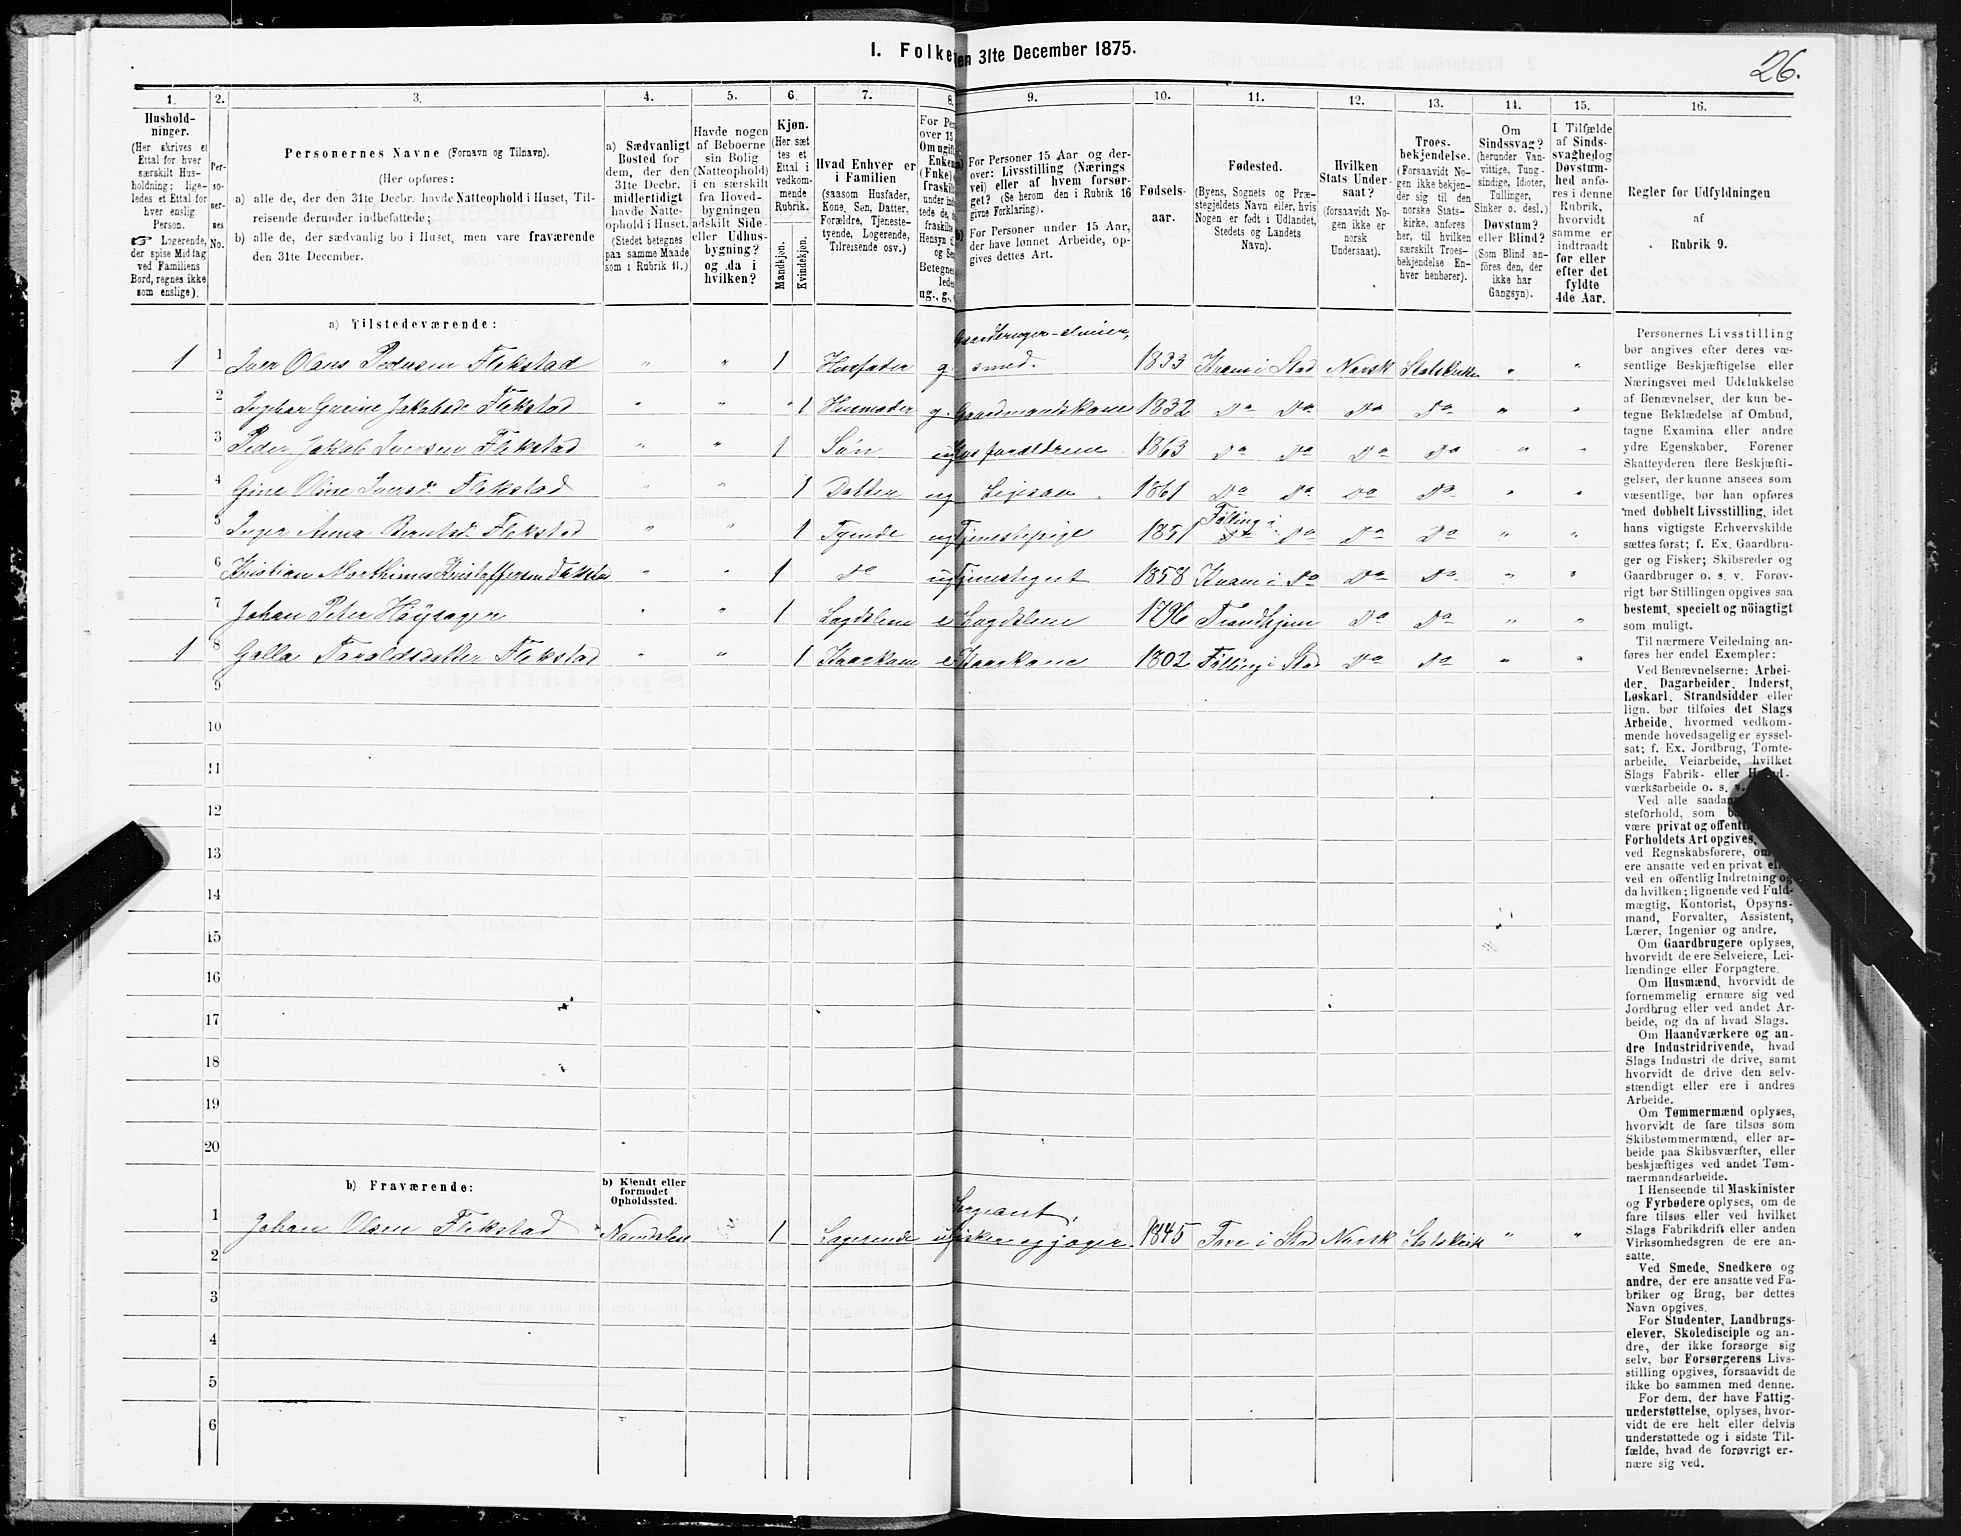 I. Folke
den 31te December 1875.
26.
1.
2.
3.
4.
5.
6.
7.
8.
9.
10.
11.
12.
13.
14.
15.
16.
Hushold-
ninger.
(Her skrives et
Ettal for hver
særskilt Hus-
holdning; lige-
ledes et Ettal for
hver enslig
Person.
☞ Logerende,
der spise Middag
ved Familiens
Bord, regnes ikke
som enslige).
Per-
so-
ner-
nes
No.
Personernes Navne (Fornavn og Tilnavn).
(Her opføres:
a) alle de, der den 31te Decbr. havde Natteophold i Huset, Til-
reisende derunder indbefattede;
b) alle de, der sædvanlig bo i Huset, men vare fraværende
den 31te December.
a) Sædvanligt
Bosted for
dem, der den
31te Decbr.
midlertidigt
havde Natte-
ophold i Huset.
(Stedet betegnes
paa samme Maade
som i Rubrik 11.)
Havde nogen
af Beboerne
sin Bolig
(Natteophold)
i en særskilt
fra Hoved-
bygningen
adskilt Side-
eller Udhus-
bygning?
og da i
hvilken?
Kjøn.
(Her sæt-
tes et
Ettal i
vedkom-
mende
Rubrik.
Mandkjøn.
Kvindekjøn.
Hvad Enhver er
i Familien
(saasom Husfader,
Kone, Søn, Datter,
Forældre, Tjeneste-
tyende, Logerende,
Tilreisende osv.)
For Per
over 15
Om ugift
Enke
(Fnke)
fraskil
under in
tede de,
fraskil
Hensyn
og Se
Betegne
lede
ug., g.,
a) For Personer 15 Aar og der-
over: Livsstilling (Nærings-
vei) eller af hvem forsør-
get? (Se herom den i Rubrik 16
givne Forklaring).
b) For Personer under 15 Aar,
der have lønnet Arbeide, op-
gives dettes Art.
Fødsels-
aar.
Fødested.
(Byens, Sognets og Præ-
stegjeldets Navn eller, hvis
Nogen er født i Udlandet,
Stedets og Landets
Navn).
Hvilken
Stats Under-
saat?
(forsaavidt No-
gen ikke er
norsk
Undersaat).
Troes-
bekjendelse.
(Forsaavidt No-
gen ikke bekjen-
der sig til den
norske Stats-
kirke, anføres
her, til hvilken
særskilt Troes-
bekjendelse En-
hver henhører).
Om
Sindssvag?
(herunder Van-
vittige, Tung-
sindige, Idioter,
Tullinger,
Sinker o. desl.)
Døvstum?
eller Blind?
(Som Blind an-
føres den, der
ikke har
Gangsyn).
I Tilfælde
af Sinds-
svaghed og
Døvstum-
hed anfø-
res i denne
Rubrik,
hvorvidt
samme er
indtraadt
før eller
efter det
fyldte
4de Aar.
Regler for Udfyldningen
af
Rubrik 9.
a) Tilstedeværende:
Gaardbruger-selveier,
1 1 Iver Olaus Pedersen Flekstad " " 1 Husfader g. smed. 1833 Kvam i Stod Norsk Statskirke " "
2 Ingebor Gurine Jakobsd Flekstad " " 1 Husmoder g. Gaardmandskone 1832 Do Do Do Do " "
3 Peder Jakob Iversen Flekstad " " 1 Søn ug Hos foraldrene 1863 Do Do Do Do " "
4 Gine Oline Iversd. Flekstad " " 1 Datter ug Ligesaa. 1861 Do Do Do Do " "
5 Inger Anna Berntsd. Flekstad " " 1 Tyende ug Tjenestepige 1851 Følling i Do Do Do " "
6 Kristian Marthinus Kristoffersen Flekstad " " 1 Do ug Tjenestegut 1858 Kvam i Do Do Do " "
7 Johan Peter Høysager " " 1 Lægdslem e Lægdslem 1796 Trondhjem Do Do " "
1 8 Golla Taraldsdatter Flekstad " " 1 Kaarkone e Kaarkone 1802 Følling i Stod Do Do " "
9
10
11
12
13
14
15
16
17
18
19
20
b) Fraværende:
b) Kjendt eller
formodet
Opholdssted.
Sergeant,
1 Johan Olsen Flekstad Namdalen 1 Logerende ug fisker og jæger. 1845 For i Stod Norsk Statskirk " "
2
3
4
5
6
Personernes Livsstilling
bør angives efter deres væ-
sentlige Beskjæftigelse eller
Næringsvei med Udelukkelse
af Benævnelser, der kun be-
tegne Beklædelse af Ombud,
tagne Examina eller andre
ydre Egenskaber. Forener
Skatteyderen flere Beskjæfti-
gelser, der kunne ansees som
væsentlige, bør han opføres
med dobbelt Livsstilling, idet
hans vigtigste Erhvervskilde
sættes først; f. Ex. Gaardbru-
ger og Fisker; Skibsreder og
Gaardbruger o. s. v. Forøv-
rigt bør Stillingen opgives saa
bestemt, specielt og nöiagtigt
som muligt.
Til nærmere Veiledning an-
føres her endel Exempler:
Ved Benævnelserne: Arbei-
der, Dagarbeider, Inderst,
Løskarl, Strandsidder eller
lign. bør tilføies det Slags
Arbeide, hvormed vedkom-
mende hovedsagelig er syssel-
sat; f. Ex. Jordbrug, Tomte-
arbeide, Veiarbeide, hvilket
Slags Fabrik- eller Haand-
værksarbeide o. s. v.
Ved alle saadan
steforhold, som
være privat og offentl
Forholdets Art opgives,
ved Regnskabsførere, om
ere ansatte ved en privat eller
ved en offentlig Indretning og
da hvilken; lignende ved Fuld-
mægtig, Kontorist, Opsyns-
mand, Forvalter, Assistent,
Lærer, Ingeniør og andre.
Om Gaardbrugere oplyses,
hvorvidt de ere Selveiere, Lei-
lændinge eller Forpagtere.
Om Husmænd, hvorvidt de
fornemmelig ernære sig ved
Jordbrug eller ved andet Ar-
beide, og da af hvad Slags.
Om Haandværkere og an-
dre Industridrivende, hvad
Slags Industri de drive, samt
hvorvidt de drive den selv-
stændigt eller ere i andres
Arbeide.
Om Tømmermænd oplyses,
hvorvidt de fare tilsøs som
Skibstømmermænd, eller ar-
beide paa Skibsværfter, eller
beskjæftiges ved andet Tøm-
mermandsarbeide.
I Henseende til Maskinister
og Fyrbødere oplyses, om de
fare tilsøs eller ved hvilket
Slags Fabrikdrift eller anden
Virksomhedsgren de ere an-
satte.
Ved Smede, Snedkere og
andre, der ere ansatte ved Fa-
briker og Brug, bør dettes
Navn opgives.
For Studenter, Landbrugs-
elever, Skoledisciple og an-
dre, der ikke forsørge sig
selv, bør Forsørgerens Livs-
stilling opgives, forsaavidt de
ikke bo sammen med denne.
For dem, der have Fattig-
understøttelse, oplyses, hvor-
vidt de ere helt eller delvis
understøttede og i sidste Til-
fælde, hvad de forøvrigt er-
nære sig ved.